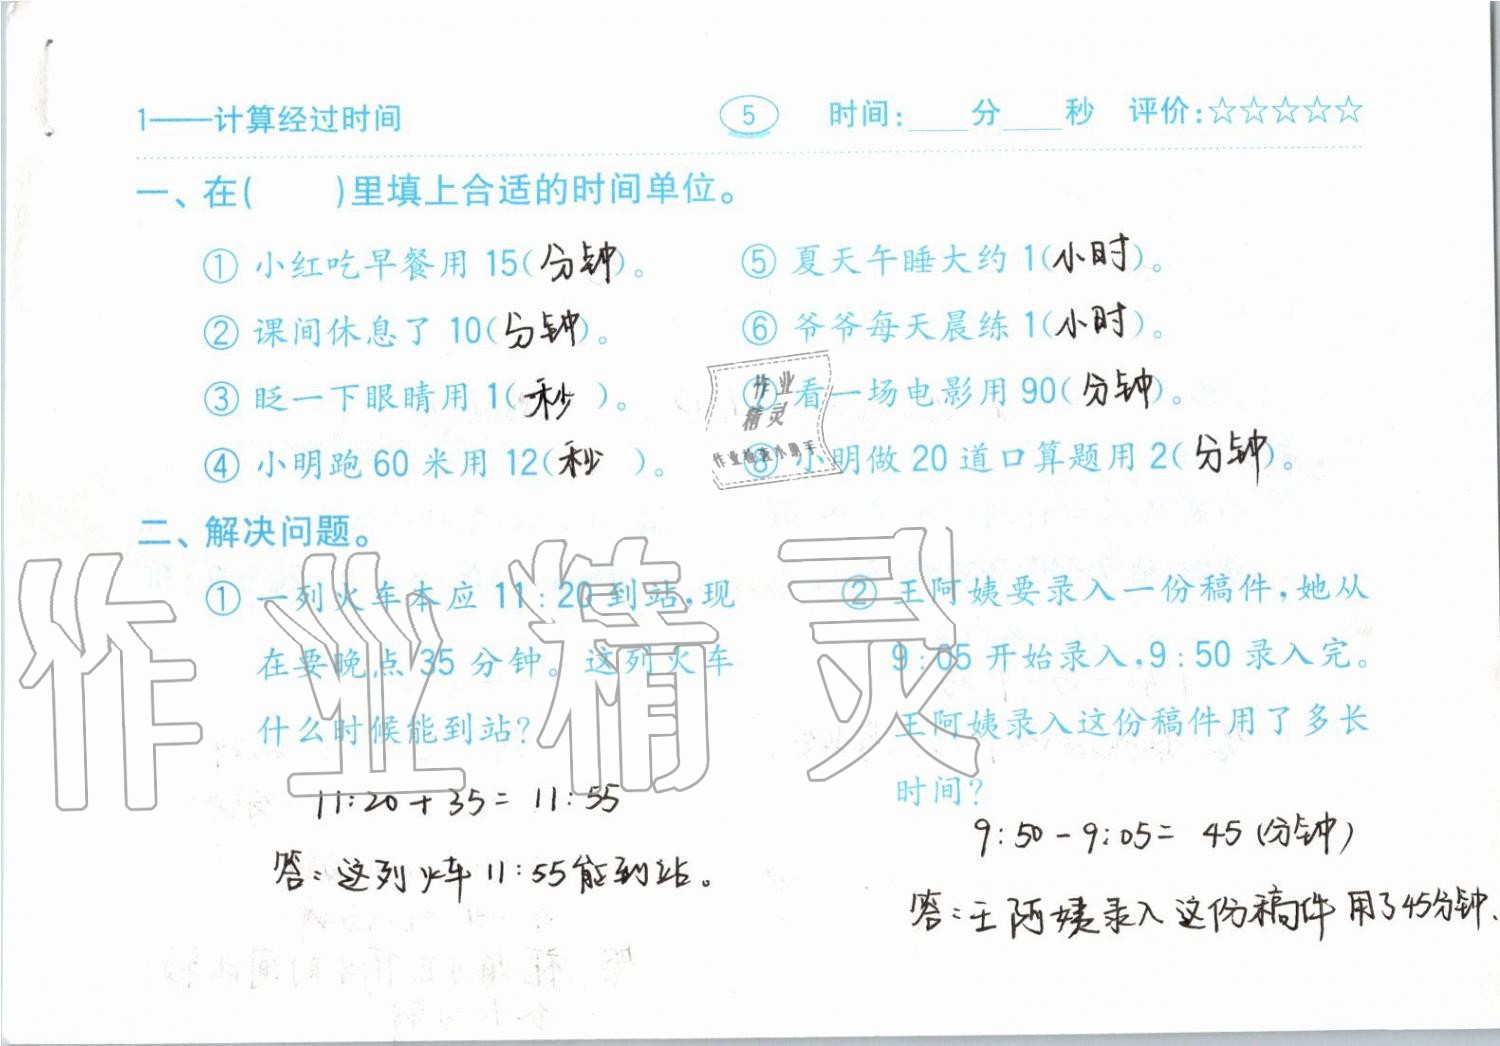 1——计算经过时间 5 时间:____分____秒 评价:☆☆☆☆☆
一、在( )里填上合适的时间单位。
① 小红吃早餐用 15(分钟)。
② 课间休息了 10(分钟)。
③ 眨一下眼睛用 1(秒)。
④ 小明跑 60 米用 12(秒)。
⑤ 夏天午睡大约 1(小时)。
⑥ 爷爷每天晨练 1(小时)。
⑦ 看一场电影用 90(分钟)。
⑧ 小明做 20 道口算题用 2(分钟)。
作业
精灵
作业检查小助手
二、解决问题。
① 一列火车本应 11:20 到站,现
在要晚点 35 分钟。这列火车
什么时候能到站?
11:20+35=11:55
答:这列火车11:55能到站。
② 王阿姨要录入一份稿件,她从
9:05 开始录入,9:50 录入完。
王阿姨录入这份稿件用了多长
时间?
9:50-9:05=45(分钟)
答:王阿姨录入这份稿件用了45分钟.
作业精灵